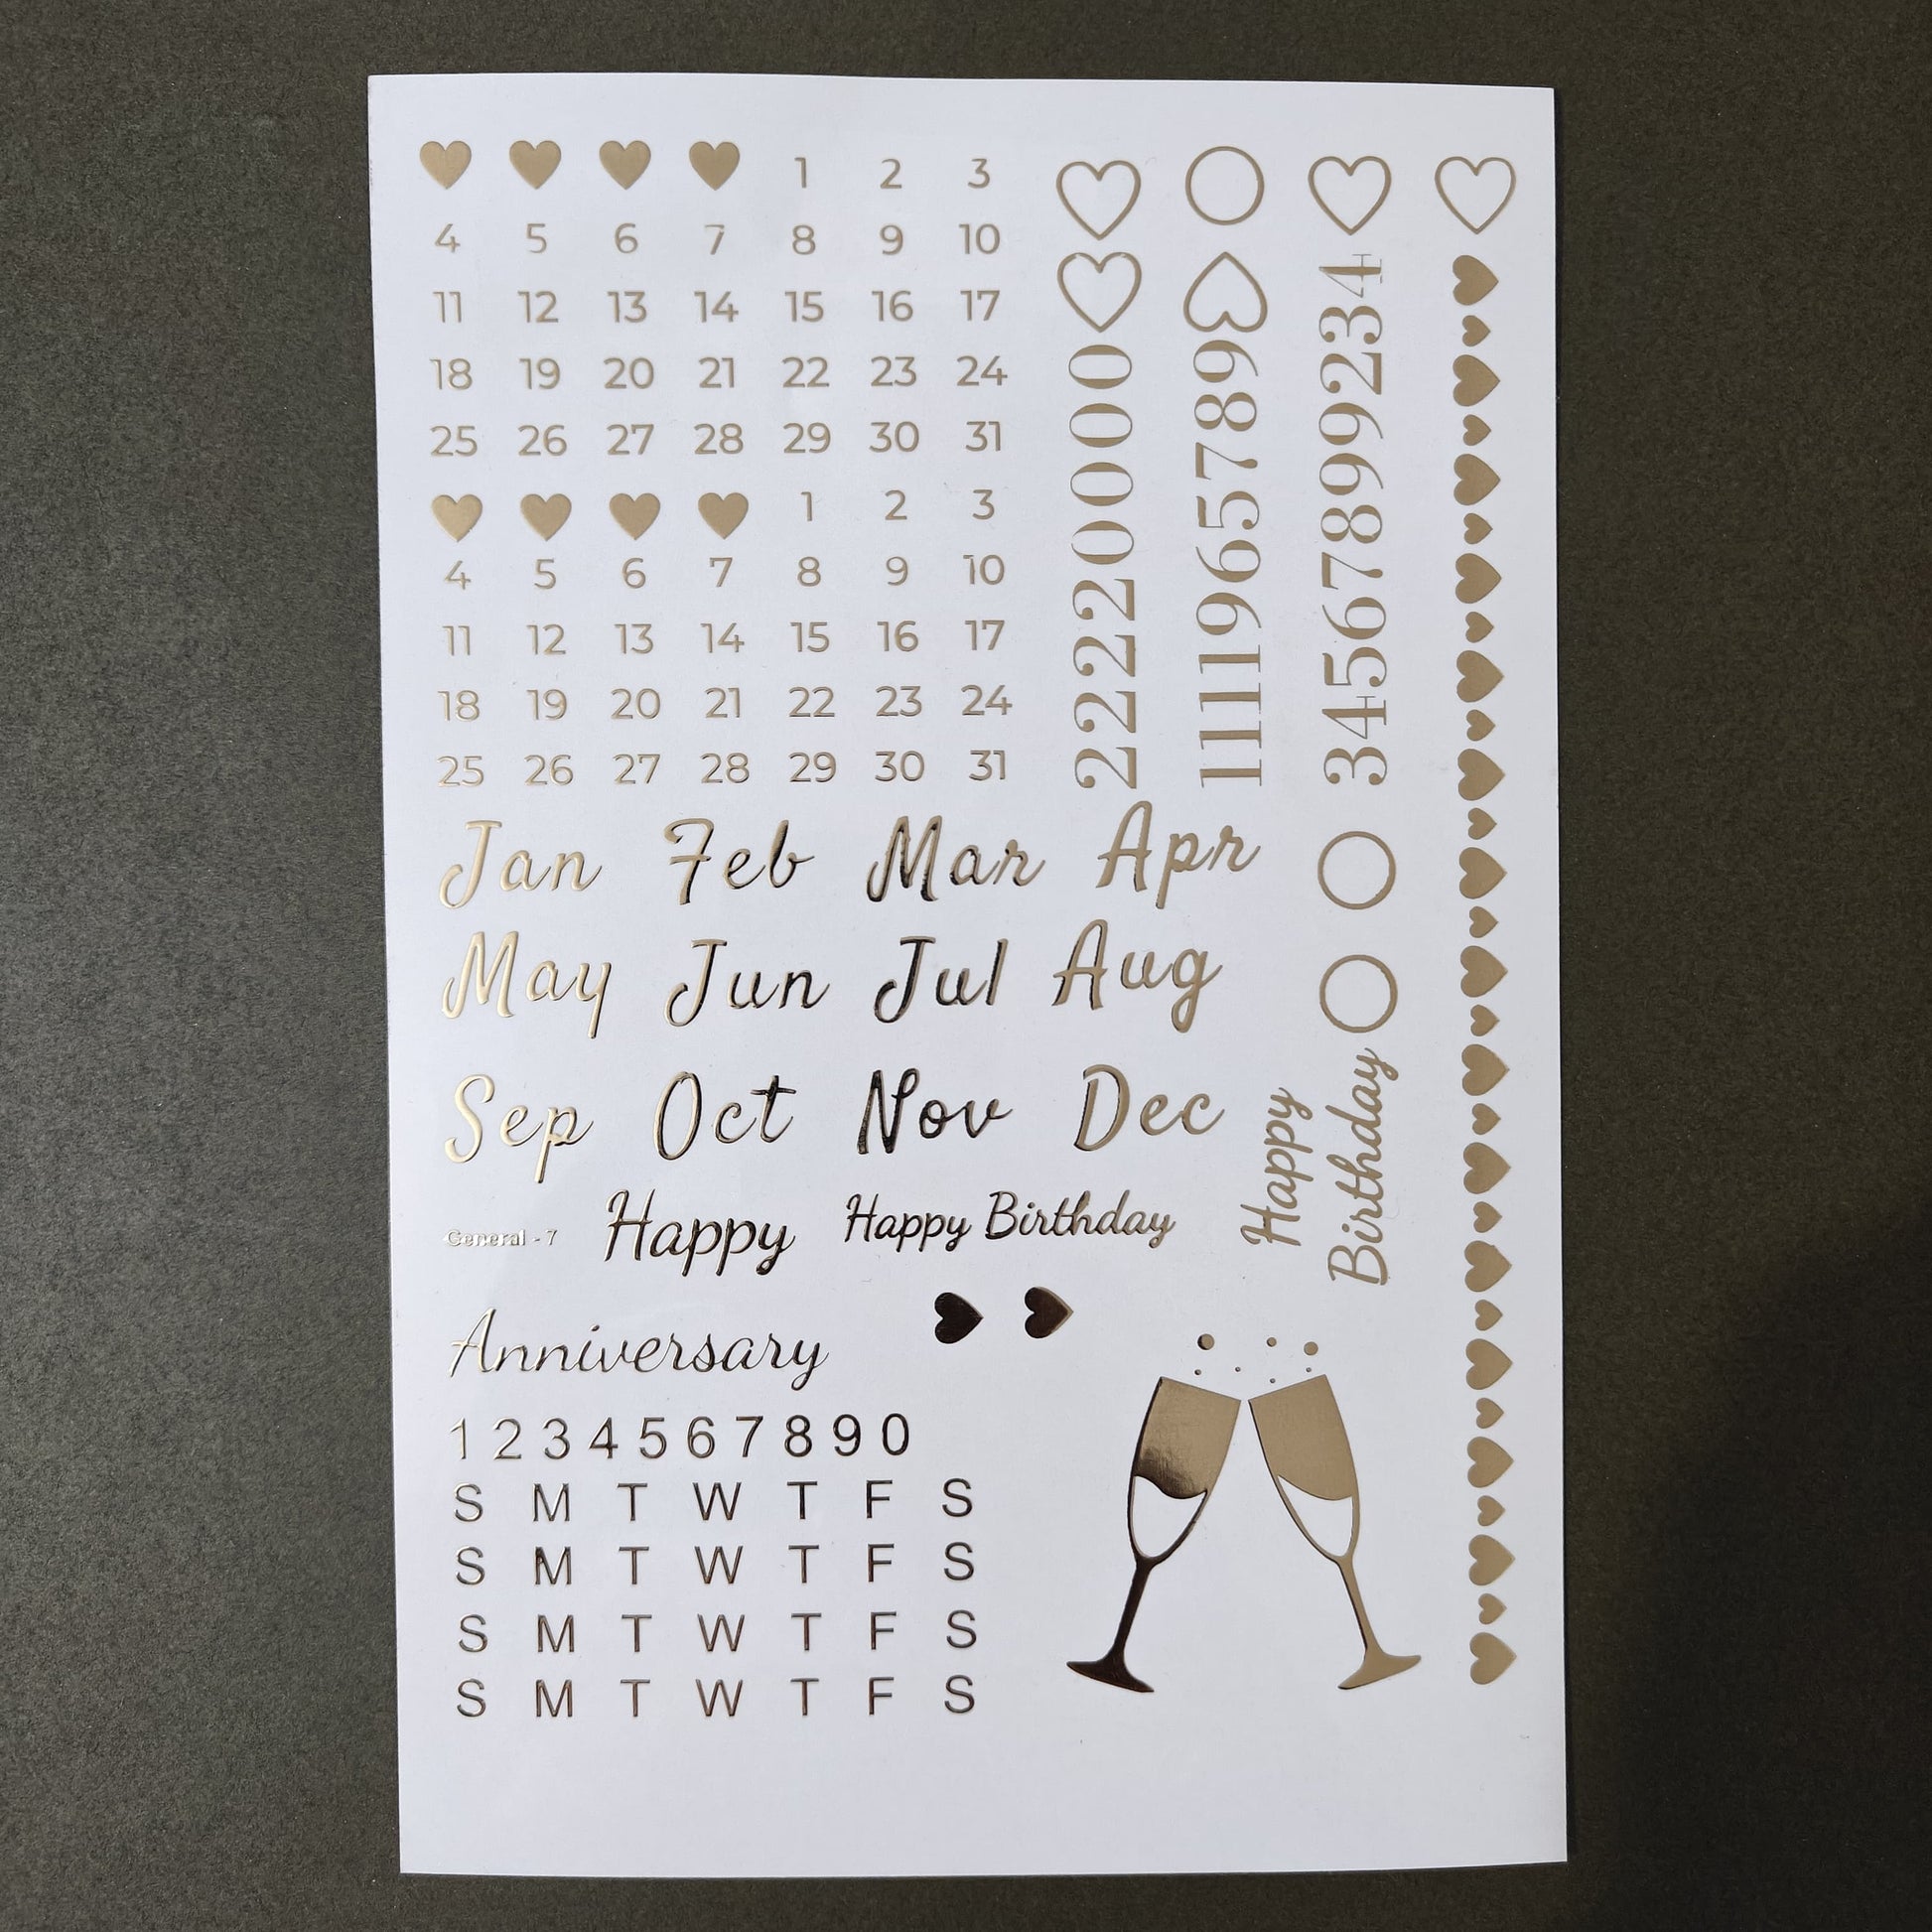 1 2 3
4 5 6 7 8 9 10
11 12 13 14 15 16 17
18 19 20 21 22 23 24
25 26 27 28 29 30 31
1 2 3
4 5 6 7 8 9 10
11 12 13 14 15 16 17
18 19 20 21 22 23 24
25 26 27 28 29 30 31
22220000
1111965789
34567899234
Jan Feb Mar Apr
May Jun Jul Aug
Sep Oct Nov Dec
General - 7 Happy Happy Birthday
Happy
Birthday
Anniversary
1 2 3 4 5 6 7 8 9 0
S M T W T F S
S M T W T F S
S M T W T F S
S M T W T F S